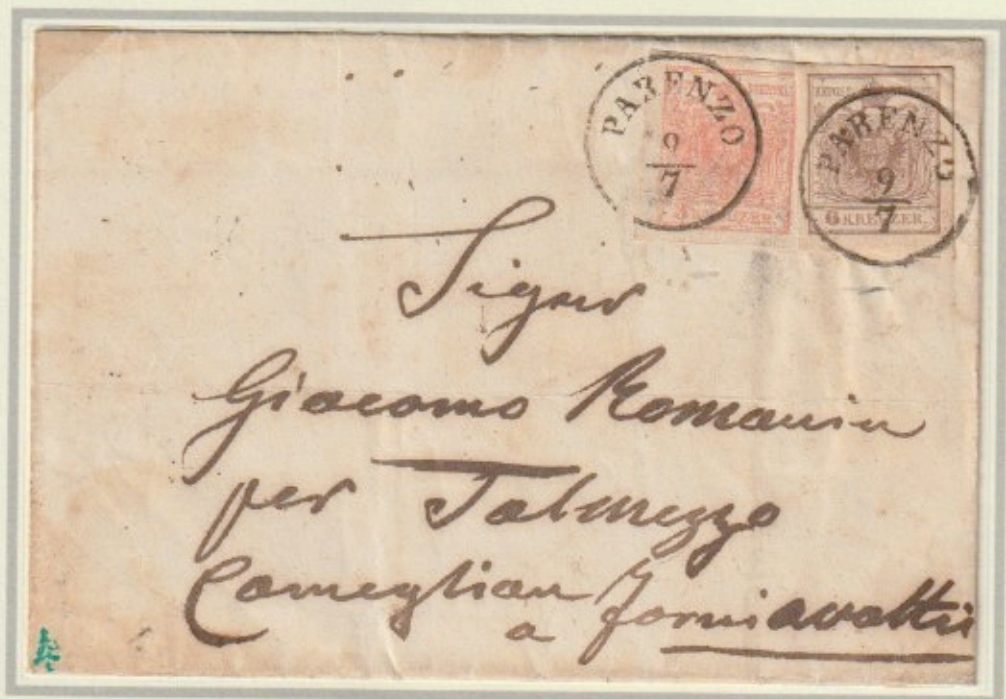 PARENZO
9
7
3 KREUZER.
PARENZO
9
7
6 KREUZER.
Signor
Giacomo Romanin
per Tolmezzo
Comeglian
a Forni avoltri